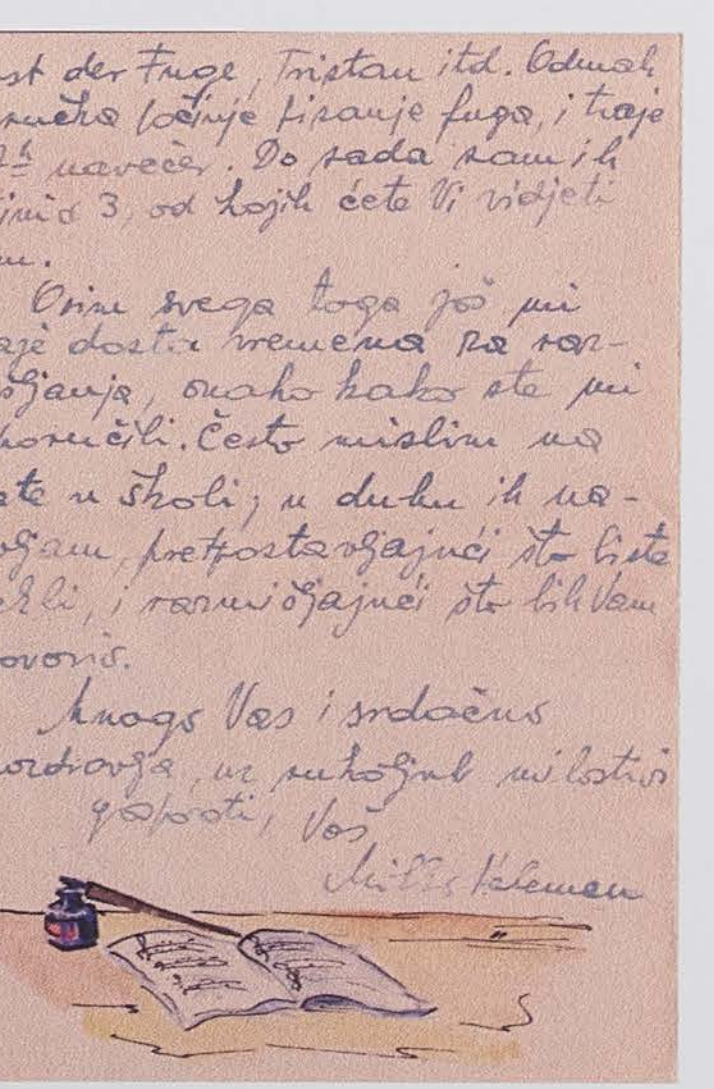 st der Fuge, Tristan itd. Odmah
ručka počinje pisanje fuga, i traje
7h navečer. Do sada sam ih
3, od kojih ćete Vi vidjeti
Osim svega toga još mi
aje dosta vremena za raz-
šljanja, onako kako ste mi
poručili. Često mislim na
ate u školi; u duhu ih na-
vljam, pretpostavljajući što biste
ekli, i razmišljajući što bih Vam
ovorio.
Mnogo Vas i srdačno
ozdravlja, uz rukoljub milostivoj
gospođi, Vaš
Milko Kelemen